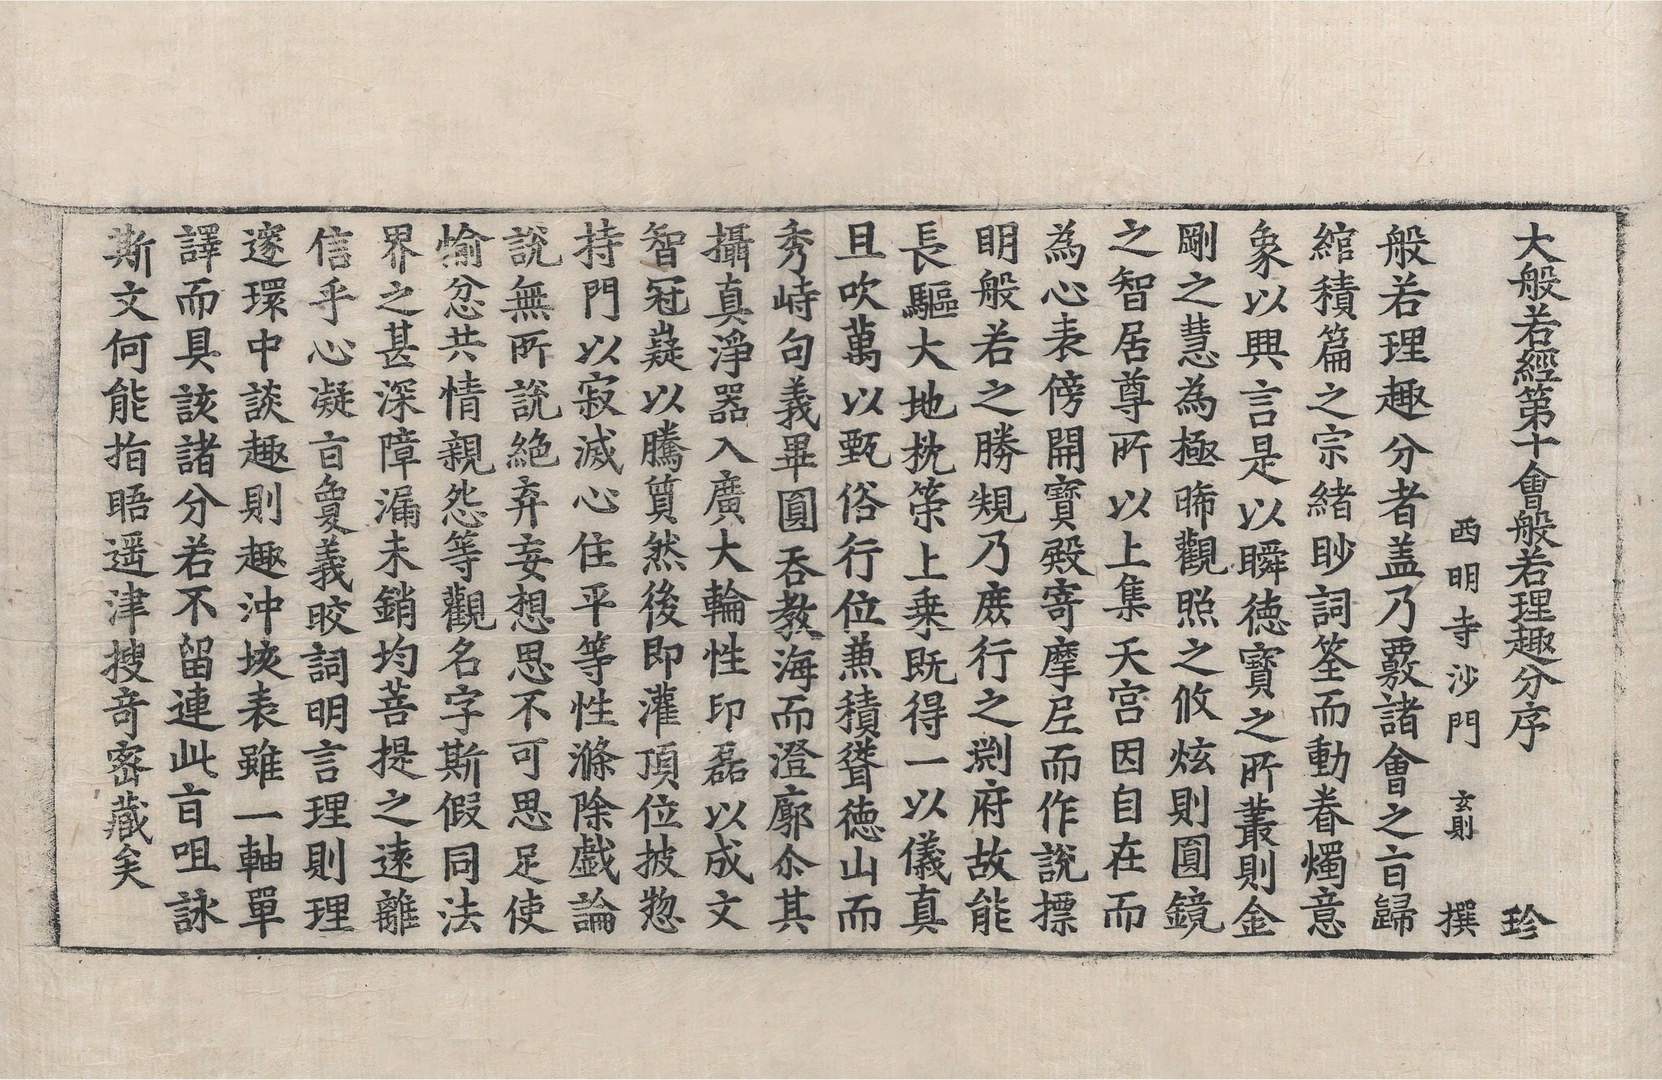 大般若經第十會般若理趣分序 珍
西明寺沙門 玄則 撰
般若理趣分者盖乃覈諸會之㫖歸
綰積篇之宗緒眇詞筌而動眷燭意
象以興言是以瞬德寶之所叢則金
剛之慧為極晞觀照之攸炫則圓鏡
之智居尊所以上集天宮因自在而
為心表傍開寶殿寄摩尼而作說摽
明般若之勝規乃庶行之淵府故能
長驅大地枕策上乗既得一以儀真
且吹萬以甄俗行位兼積聳德山而
秀峙句義畢圓吞教海而澄廓尒其
攝真淨器入廣大輪性印磊以成文
智冠嶷以騰質然後即灌頂位披惣
持門以寂滅心住平等性滌除戲論
說無所說絕弃妄想思不可思足使
愉忿共情親怨等觀名字斯假同法
界之甚深障漏未銷均菩提之遠離
信乎心凝㫖夐義皎詞明言理則理
邃環中談趣則趣沖垓表雖一軸單
譯而具該諸分若不留連此㫖咀詠
斯文何能指晤遥津搜竒密藏矣